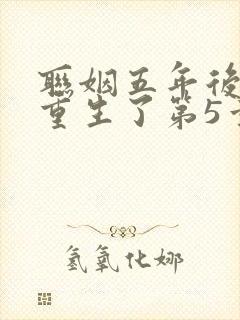 聯姻五年後
重生了第5
氫氧化娜